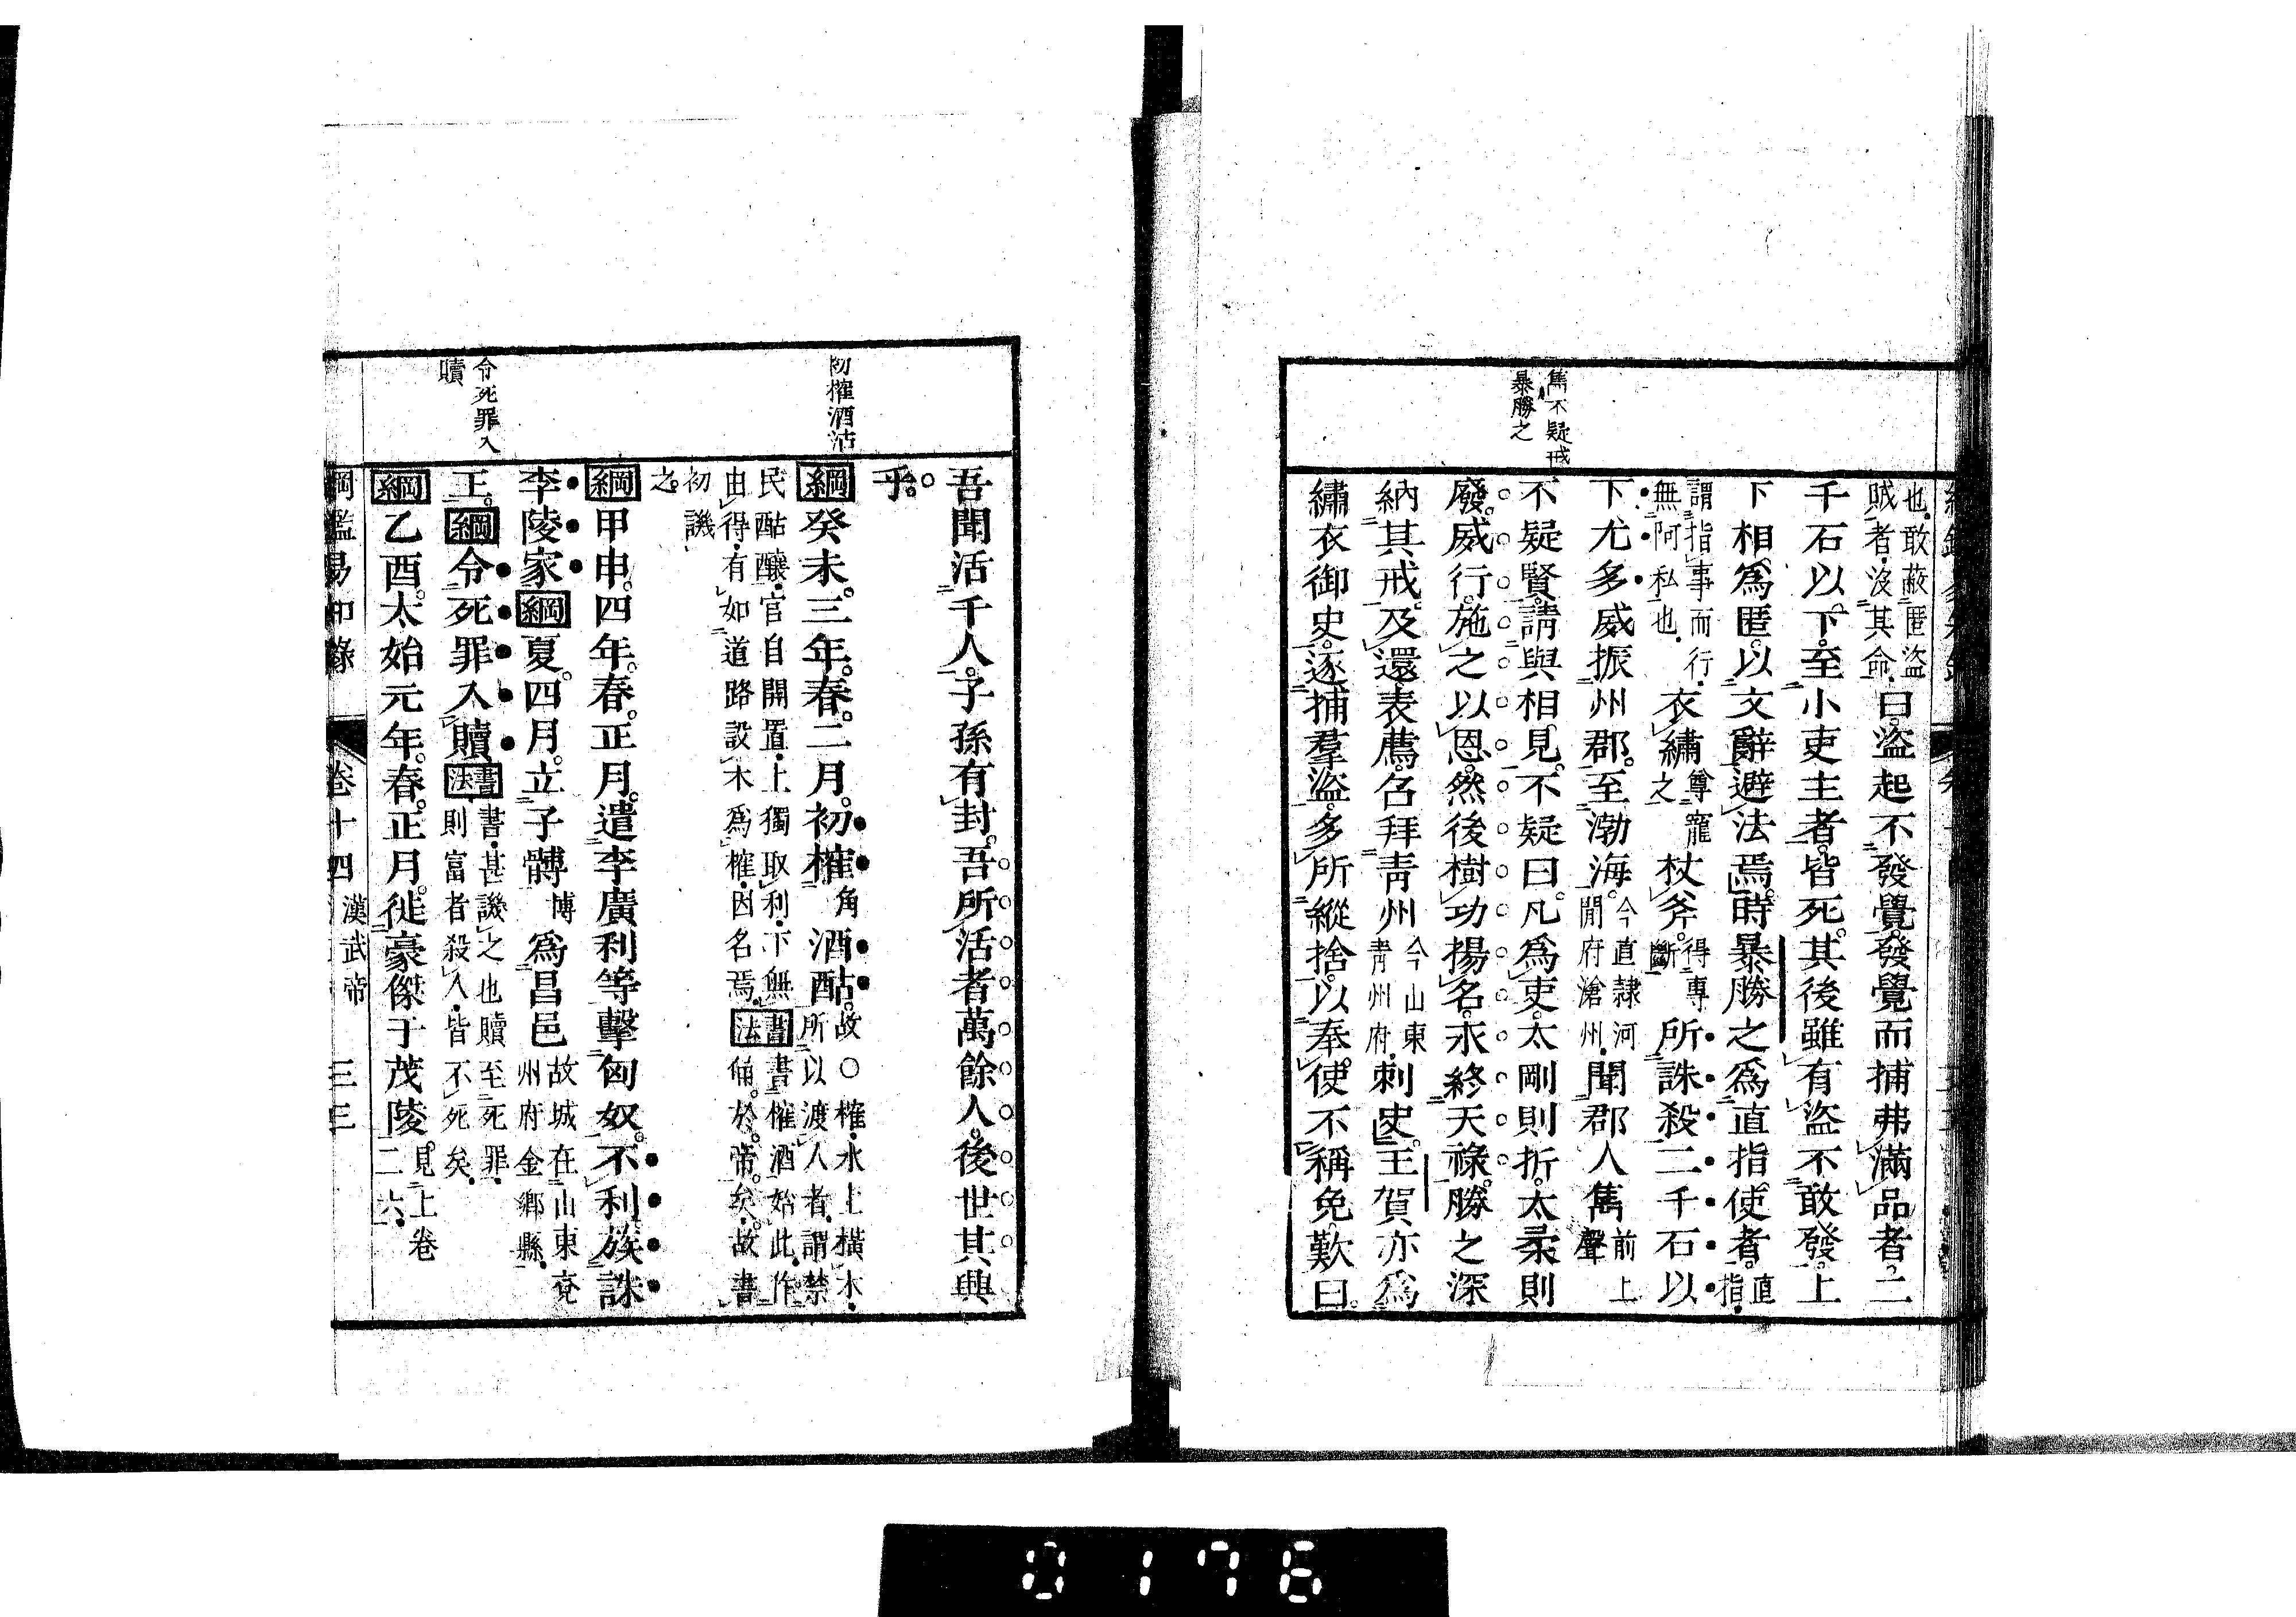 雋不疑戒
暴勝之
也敢蔽匿盜
賊者沒其命
曰盜起不發覺發覺而捕弗滿品者二
千石以下至小吏主者皆死其後雖有盜不敢發上
下相爲匿以文辭避法焉時暴勝之爲直指使者
直
指
謂指事而行
無阿私也
衣繡
尊寵
之
杖斧
得專
斷
所誅殺二千石以
下尤多威振州郡至渤海
今直隸河
閒府滄州
聞郡人雋
前上
聲
不疑賢請與相見不疑曰凡爲吏太剛則折太柔則
廢威行施之以恩然後樹功揚名永終天祿勝之深
納其戒及還表薦召拜青州
今山東
青州府
刺史王賀亦爲
繡衣御史逐捕羣盜多所縱捨以奉使不稱免歎曰
初榷酒沽
令死罪入
贖
吾聞活千人子孫有封吾所活者萬餘人後世其興
乎
綱癸未三年春二月初榷
角
酒酤
故○榷水上橫木
所以渡人者謂禁
民酤釀官自開置上獨取利下無
由得有如道路設木爲榷因名焉
書法
書榷酒始此作
俑於帝矣故書
初譏
之
綱甲申四年春正月遣李廣利等擊匈奴不利族誅
李陵家綱夏四月立子髆
博
爲昌邑
故城在山東兗
州府金鄉縣
王綱令死罪入贖
書法
書甚譏之也贖至死罪
則富者殺人皆不死矣
綱乙酉太始元年春正月徙豪傑于茂陵
見上卷
二六
綱鑑易知錄
卷十四
漢武帝
三三
0176